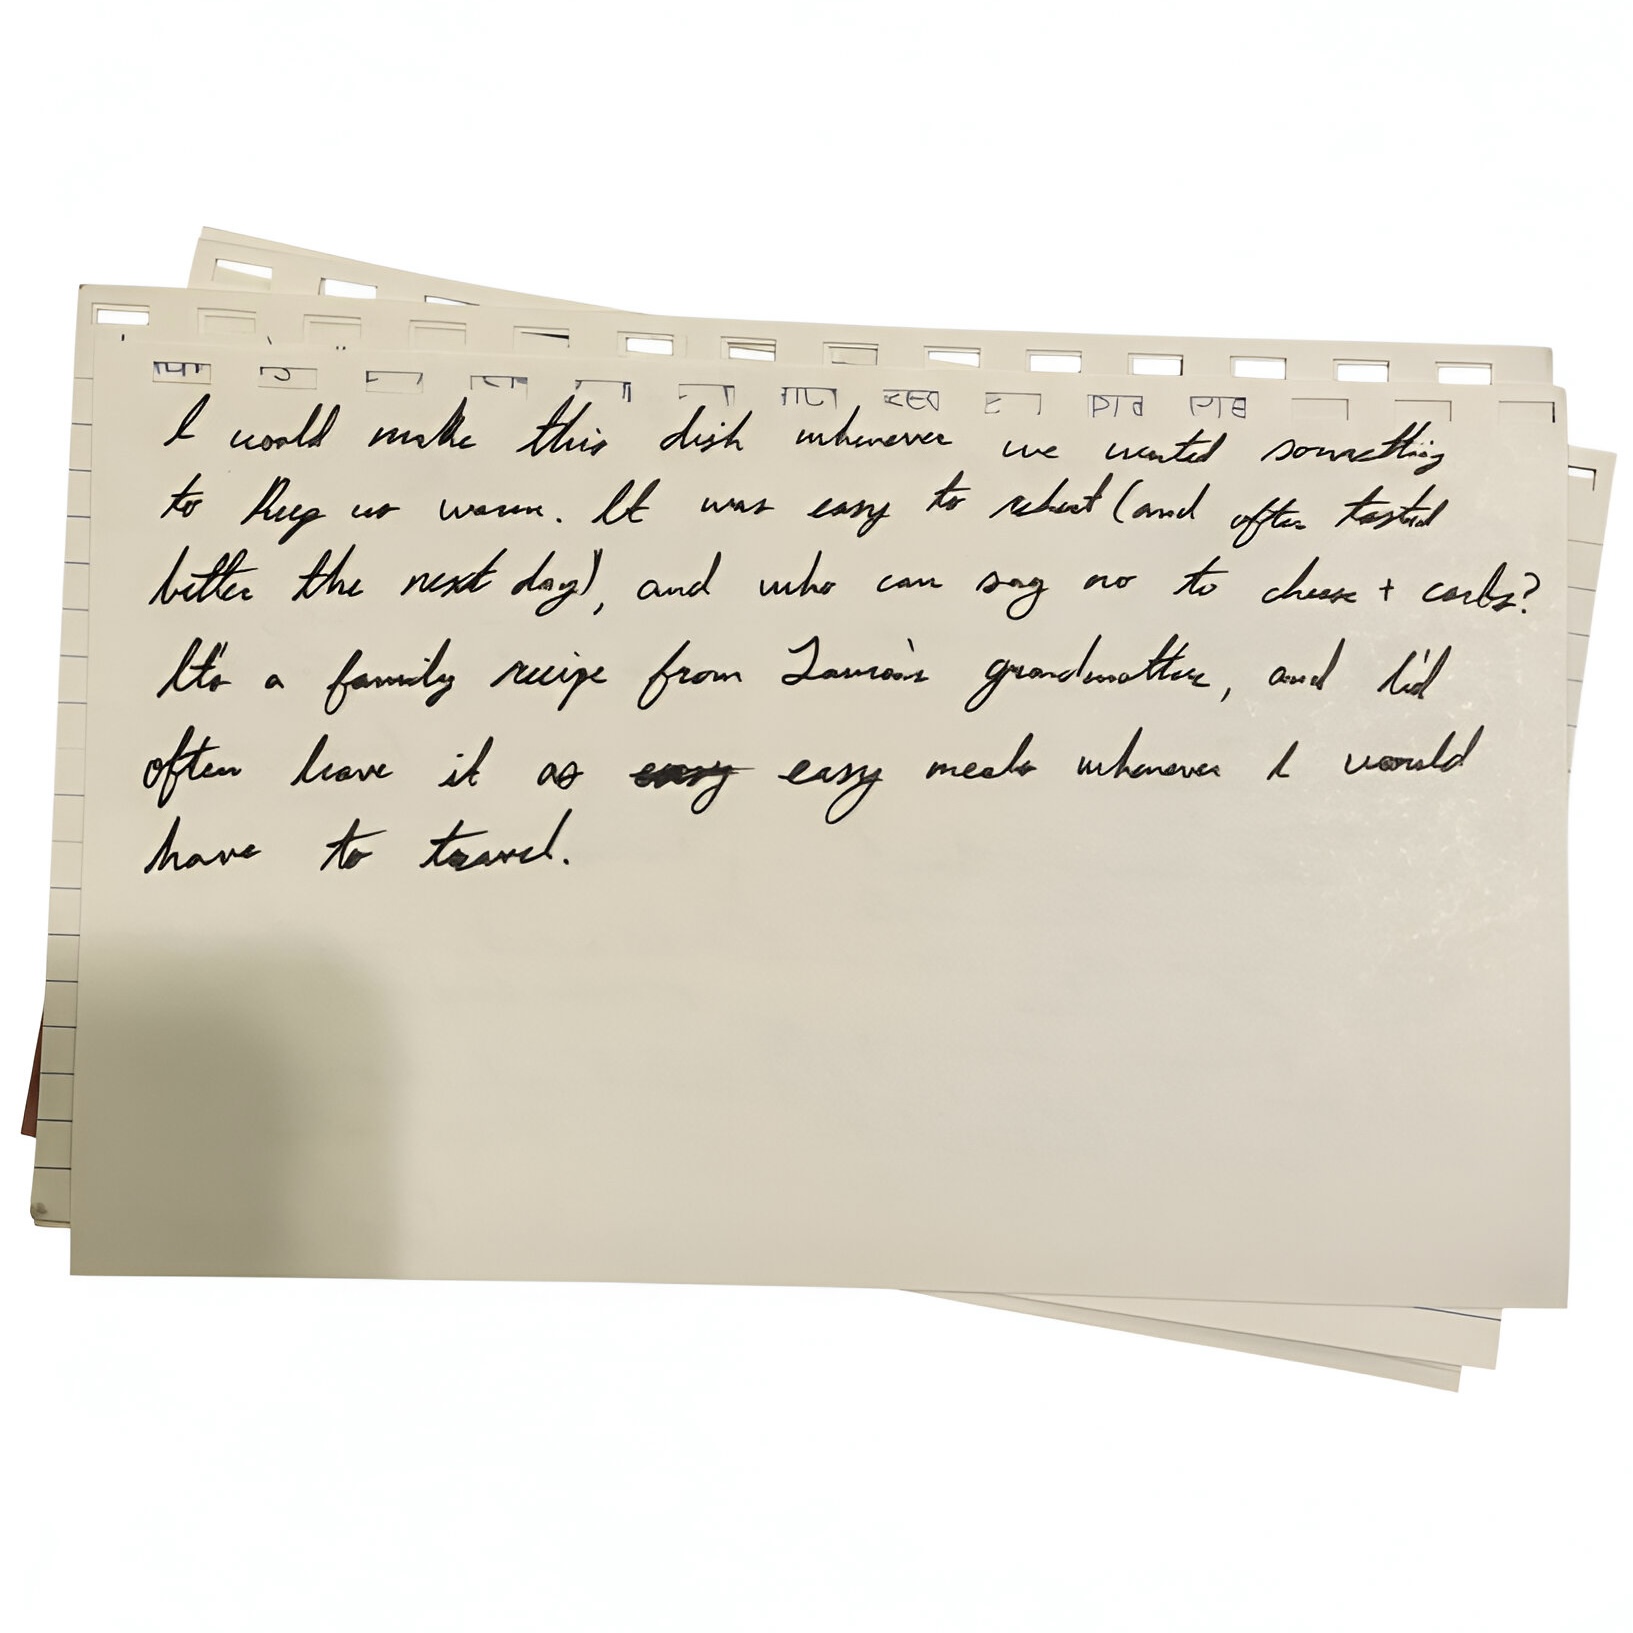 I would make this dish whenever we wanted something
to keep us warm. It was easy to reheat (and often tasted
better the next day), and who can say no to cheese + carbs?
It's a family recipe from Laura's grandmother, and I'd
often leave it as easy easy meals whenever I would
have to travel.